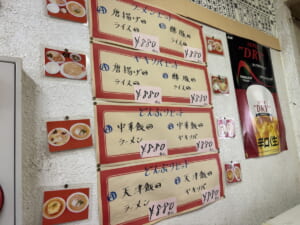 ラーメンセット
Ⓐ 唐揚げ四
ライス
Ⓑ 酢豚
ライス
¥880
¥880
ヤキソバセット
Ⓐ 唐揚げ四
ライス
Ⓑ 酢豚
ライス
¥880
¥880
どんぶりセット
Ⓐ 中華飯
ラーメン
Ⓑ 中華飯
ヤキソバ
¥880
¥880
どんぶりセット
Ⓐ 天津飯
ラーメン
Ⓑ 天津飯
ヤキソバ
¥880
¥880
DRY
辛口〈生〉